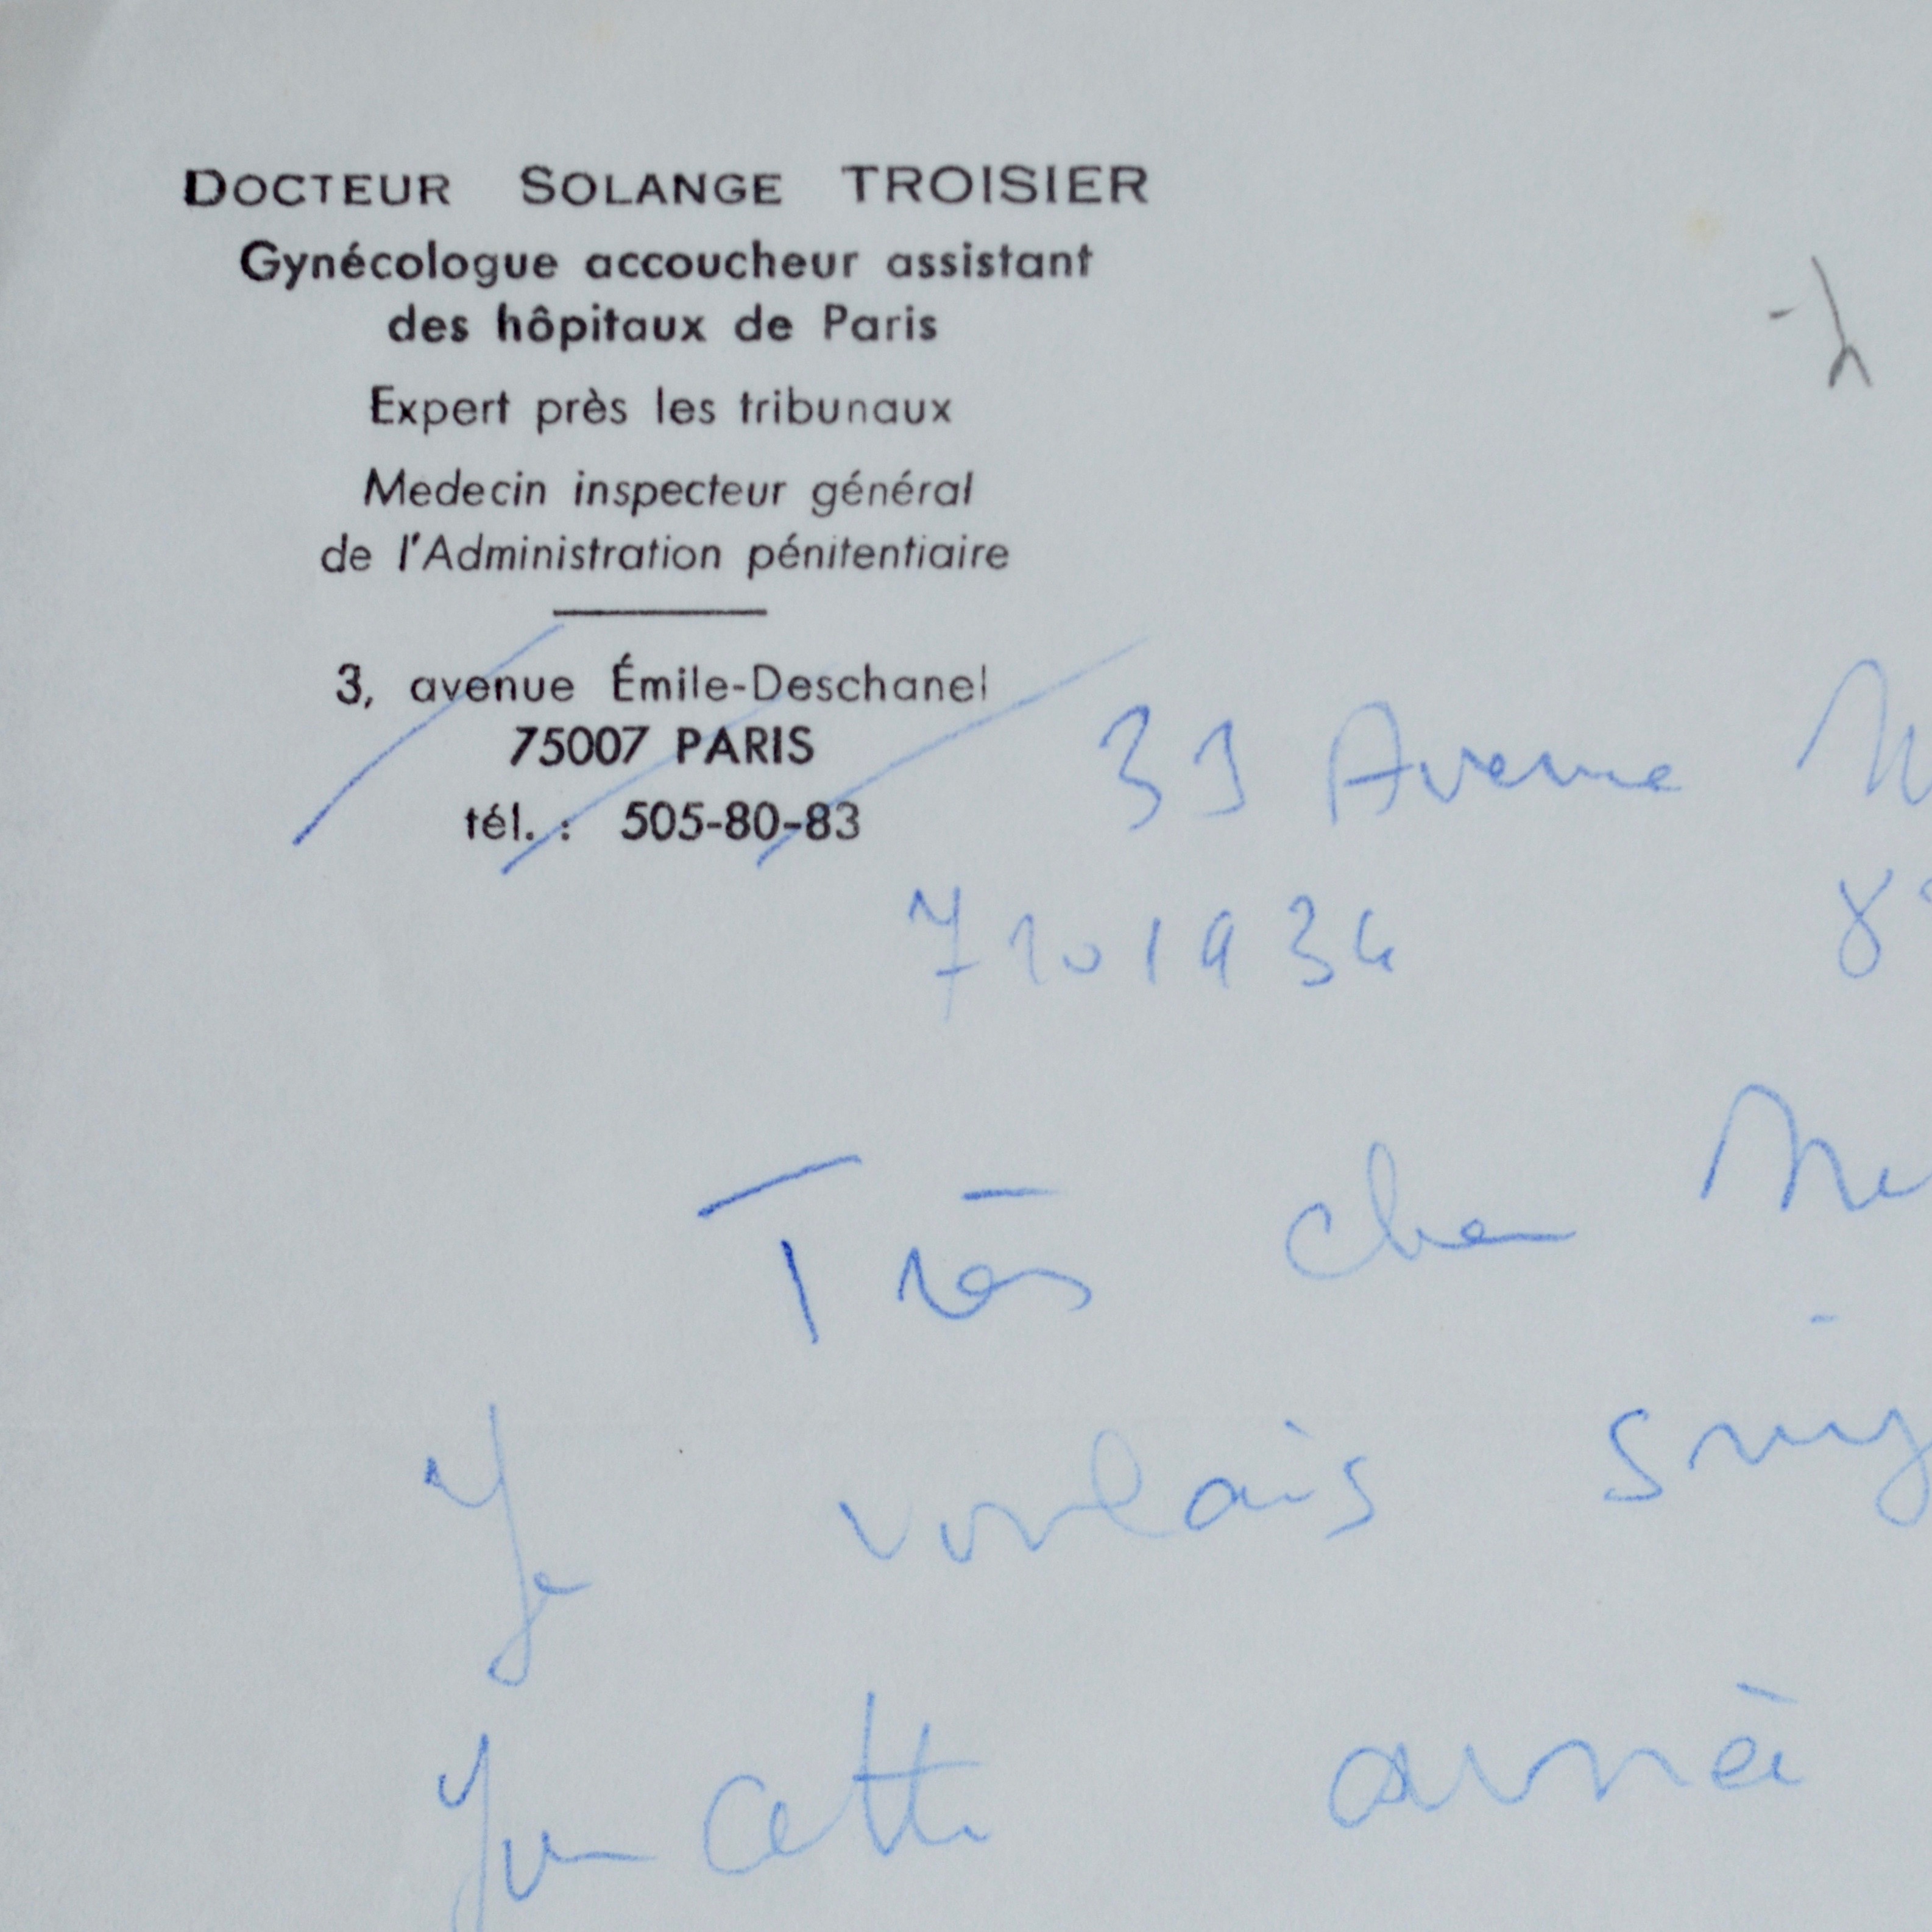 DOCTEUR SOLANGE TROISIER
Gynécologue accoucheur assistant
des hôpitaux de Paris
Expert près les tribunaux
Medecin inspecteur général
de l'Administration pénitentiaire
3, avenue Émile-Deschanel
75007 PARIS
tél. : 505-80-83
33 Avenue
7201934
Très cher
Je voulais
cette année